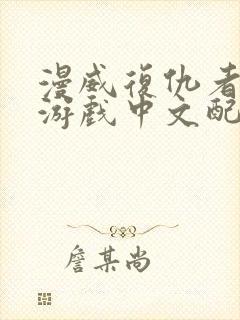 漫威復仇者
游戏中文配
詹某尚